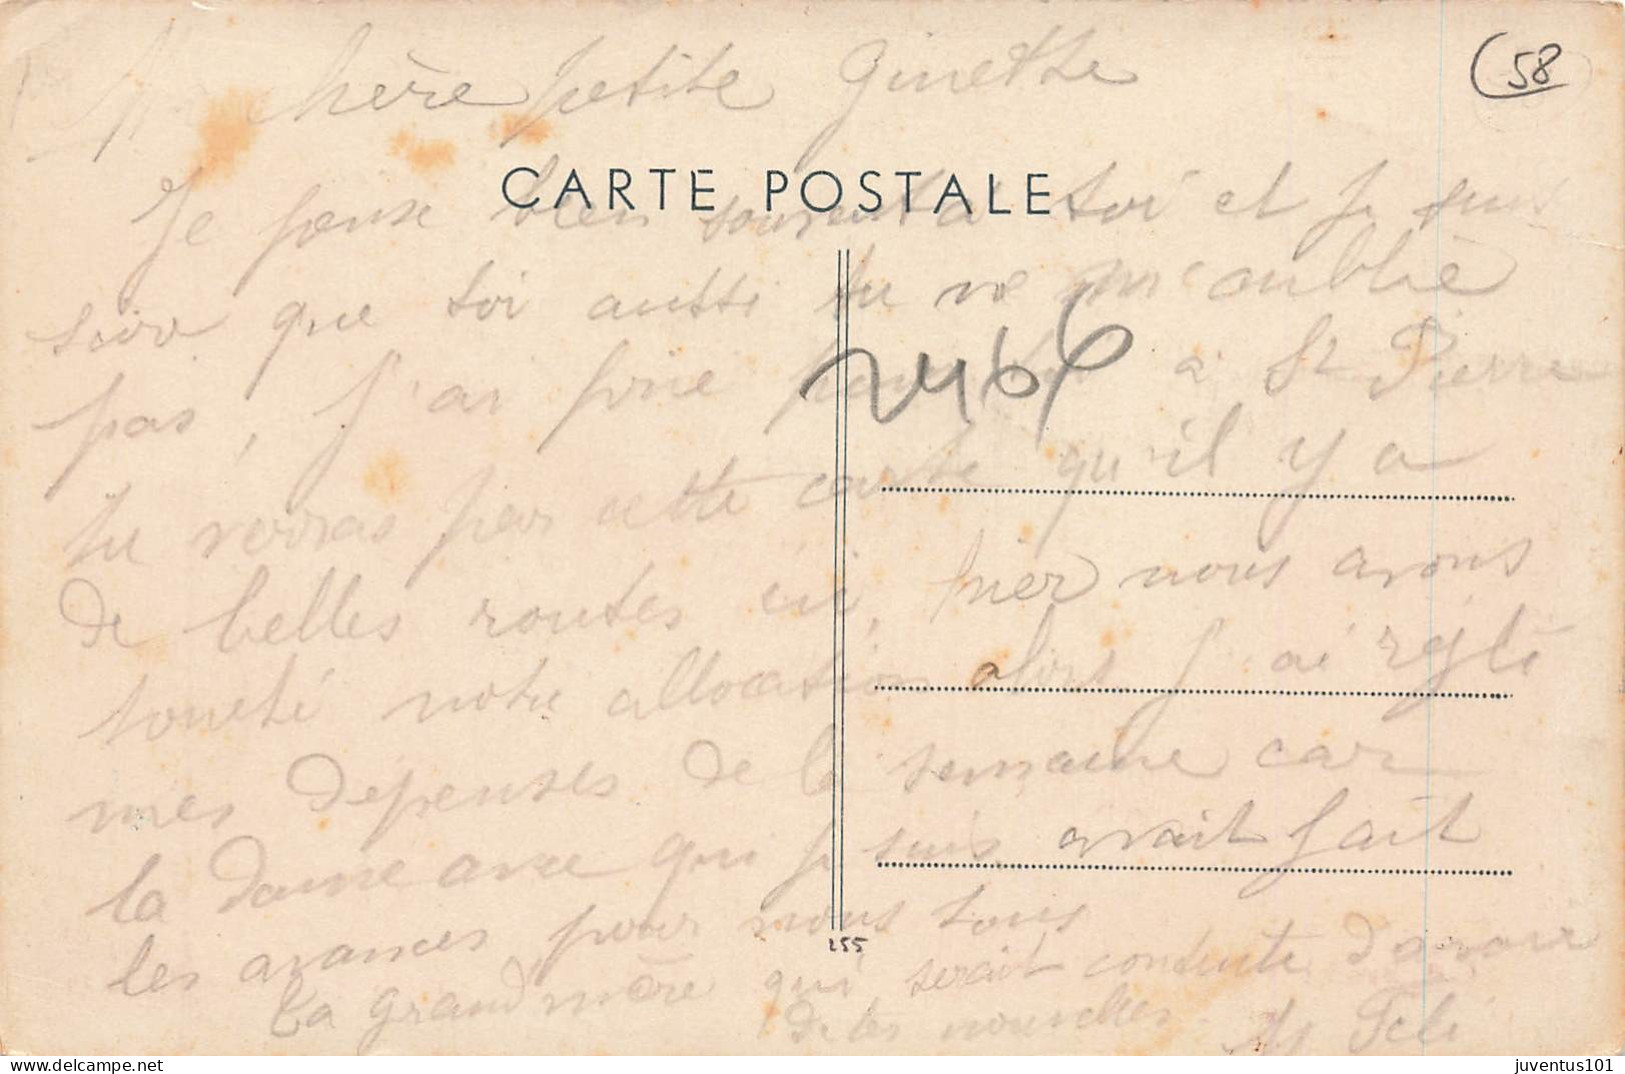 Ma chère petite Ginette
(58
CARTE POSTALE
Je pense bien souvent a toi et je suis
sure que toi aussi tu ne m'oublie
pas, J'ai à St Pierre
2466
tu verras par cette carte qu'il y a
de belles routes ici, hier nous avons
touché notre allocation alors J'ai réglé
mes depenses de la semaine car
la dame avec qui je suis avait fait
les avances pour nous tous
255
ta grand mère qui serait contente d'avoir
de tes nouvelles.
juventus101